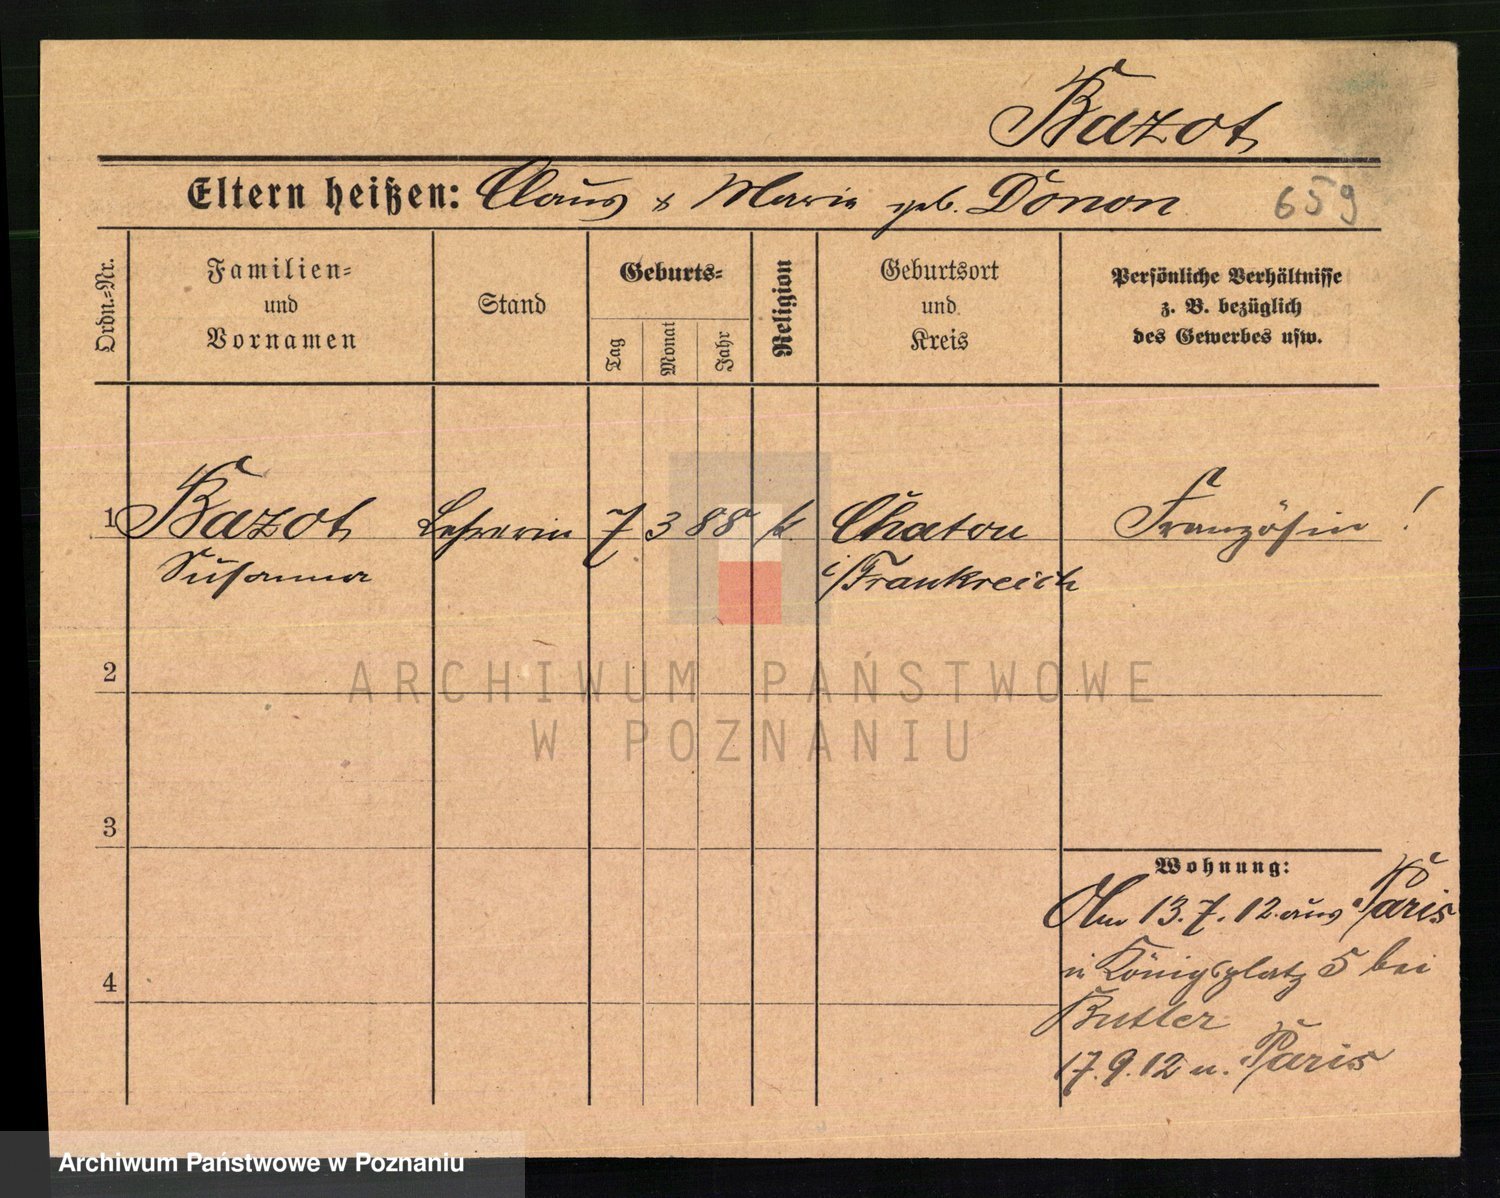 Bazot
Eltern heißen: Claus & Marie geb. Donon 659
Ordn.-Nr.
Familien-
und
Vornamen
Stand
Geburts-
Tag
Monat
Jahr
Religion
Geburtsort
und
Kreis
Persönliche Verhältnisse
z. B. bezüglich
des Gewerbes usw.
1 Bazot Lehrerin 7 3 88 k. Chatou Französin !
Susanna i/Frankreich
2
3
4
Wohnung:
Am 13.7.12. aus Paris
n Königsplatz 5 bei
Butler
17.9.12 n. Paris
ARCHIWUM PAŃSTWOWE
W POZNANIU
Archiwum Państwowe w Poznaniu